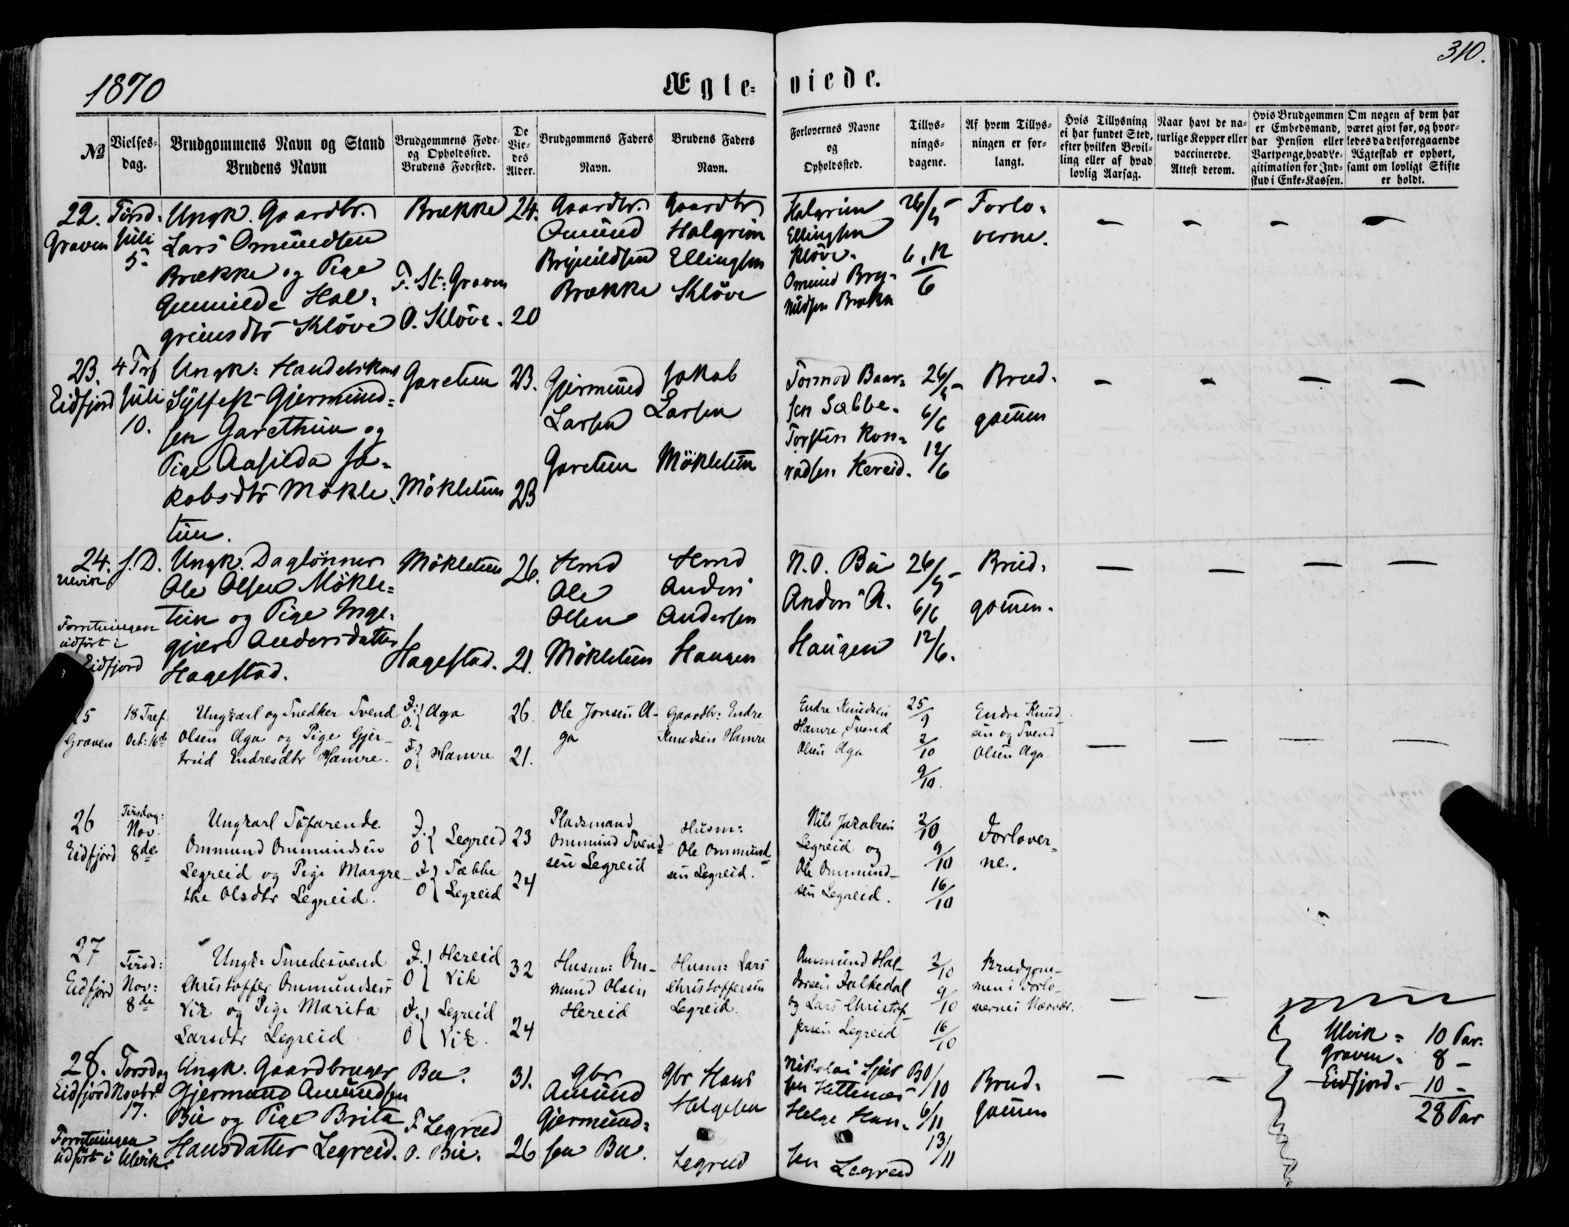 310.
1870
Ægte-viede.
No
Vielses-dag.
Brudgommens Navn og Stand
Brudens Navn
Brudgommens Føde- og Opholdssted.
Brudens Fødested.
De Vie-des Alder.
Brudgommens Faders Navn.
Brudens Faders Navn.
Forlovernes Navne og Opholdssted.
Tillys-nings-dagene.
Af hvem Tillys-ningen er for-langt.
Hvis Tillysning ei har fundet Sted, efter hvilken Bevil-ling eller af hvad lovlig Aarsag.
Naar havt de na-turlige Kopper eller vaccinerede. Attest derom.
Hvis Brudgommen er Embedsmand, har Pension eller Vartpenge, hvad Le-gitimation for Ind-skud i Enke-Kassen.
Om nogen af dem har været givt før, og hvor-ledes da det foregaaende Ægteskab er ophørt, samt om lovligt Skifte er holdt.
22. Graven
Tirsd. Juli 5
Ungk. Gaardbr.
Lars Omundsen
Brække og Pige
Gunnilde Hal-
grimsdtr Kløve
Brække
F. St: Graven
O. Kløve.
24.
20
Gaardbr.
Omund
Brynildsen
Brække
Gaardbr
Halgrim
Ellingsen
Kløve
Halgrim
Ellingsen
Kløve.
Omund Bry-
nildsen Brække
26/5
6, 12
6
Forlo-
verne.
— — — —
23. Eidfjord
4 Tref Juli 10.
Ungk: Handelskarl
Sylfest Gjermund-
sen Garethun og
Pige Aasilda Ja-
kobsdtr Møkle-
tun.
Garetun
Møkletun
23.
23
Gjermund
Larsen
Garetun
Jakob
Larsen
Møkletun
Tormod Baar-
sen Sæbbe.
Torstein Kon-
radsen Hereid.
26/5
6/6
12/6
Brud-
gommen
— — — —
24. Ulvik
Forretningen
udført i
Eidfjord
s. D.
Ungk. Daglønner
Ole Olsen Møkle-
tun og Pige Inge-
gjær Andersdatter
Hagestad.
Møkletun
Hagestad.
26.
21.
Hmd
Ole
Olsen
Møkletun
Hmd
Anders
Andersen
Haugen
N. O. Bu
Anders A.
Haugen
26/5
6/6
12/6.
Brud-
gommen.
— — — —
25 Graven
18 Tref. Oct: 16de
Ungkarl og Snedker Svend
Olsen Aga og Pige Gjer-
trud Endresdtr Hamre.
F: O: } Aga
F: O } Hamre
26.
21.
Ole Jonsen A-
ga
Gaardbr: Endre
Knudsen Hamre
Endre Knudsen
Hamre, Svend
Olsen Aga
25/9
2/10
9/10.
Endre Knud-
sen og Svend
Olsen Aga
— — — —
26 Eidfjord
Tirsdag: Nov. 8de
Ungkarl Søfarende
Ommund Ommundsen
Legreid og Pige Margre-
the Olsdtr Legreid.
F. O { Legreid
F. O { Sæbbe Legreid
23
24
Pladsmand
Ommund Svend-
sen Legreid
Husm:
Ole Ommund-
sen Legreid.
Nils Jakobsen
Legreid og
Ole Ommund-
sen Legreid.
2/10
9/10
16/10
Forlover-
ne.
27 Eidfjord
Tirsd: Nov: 8de
Ungk: Smedesvend
Christoffer Ommundsen
Vik og Pige Marita
Larsdtr Legreid
F. O } Hereid Vik
F. O } Legreid Vik.
32
24
Husm: Om-
mund Olsen
Hereid
Husm: Lars
Christoffersen
Legreid.
Ammund Hal-
dorsen Falkedal
og Lars Christof-
fersen Legreid
2/10
9/10
16/10
Brudgom-
men i Forlo-
vernes Nærvær.
— —
Ulvik = 10 Par.
Graven = 8 —
Eidfjord - 10 —
28 Par
28. Eidfjord
Forretningen
udført i Ulvik.
Torsdag Novbr 17.
Ungk. Gaardbruger
Gjermund Amundsen
Bu og Pige Brita
Hansdatter Legreid.
Bu.
F. Legreid
O. Bu.
31.
26
Gbr
Amund
Gjermund-
sen Bu.
Gbr Hans
Helgesen
Legreid
Nikolai
Helge Han-
sen Legreid
30/10
6/11
13/11
Brud-
gommen
— —